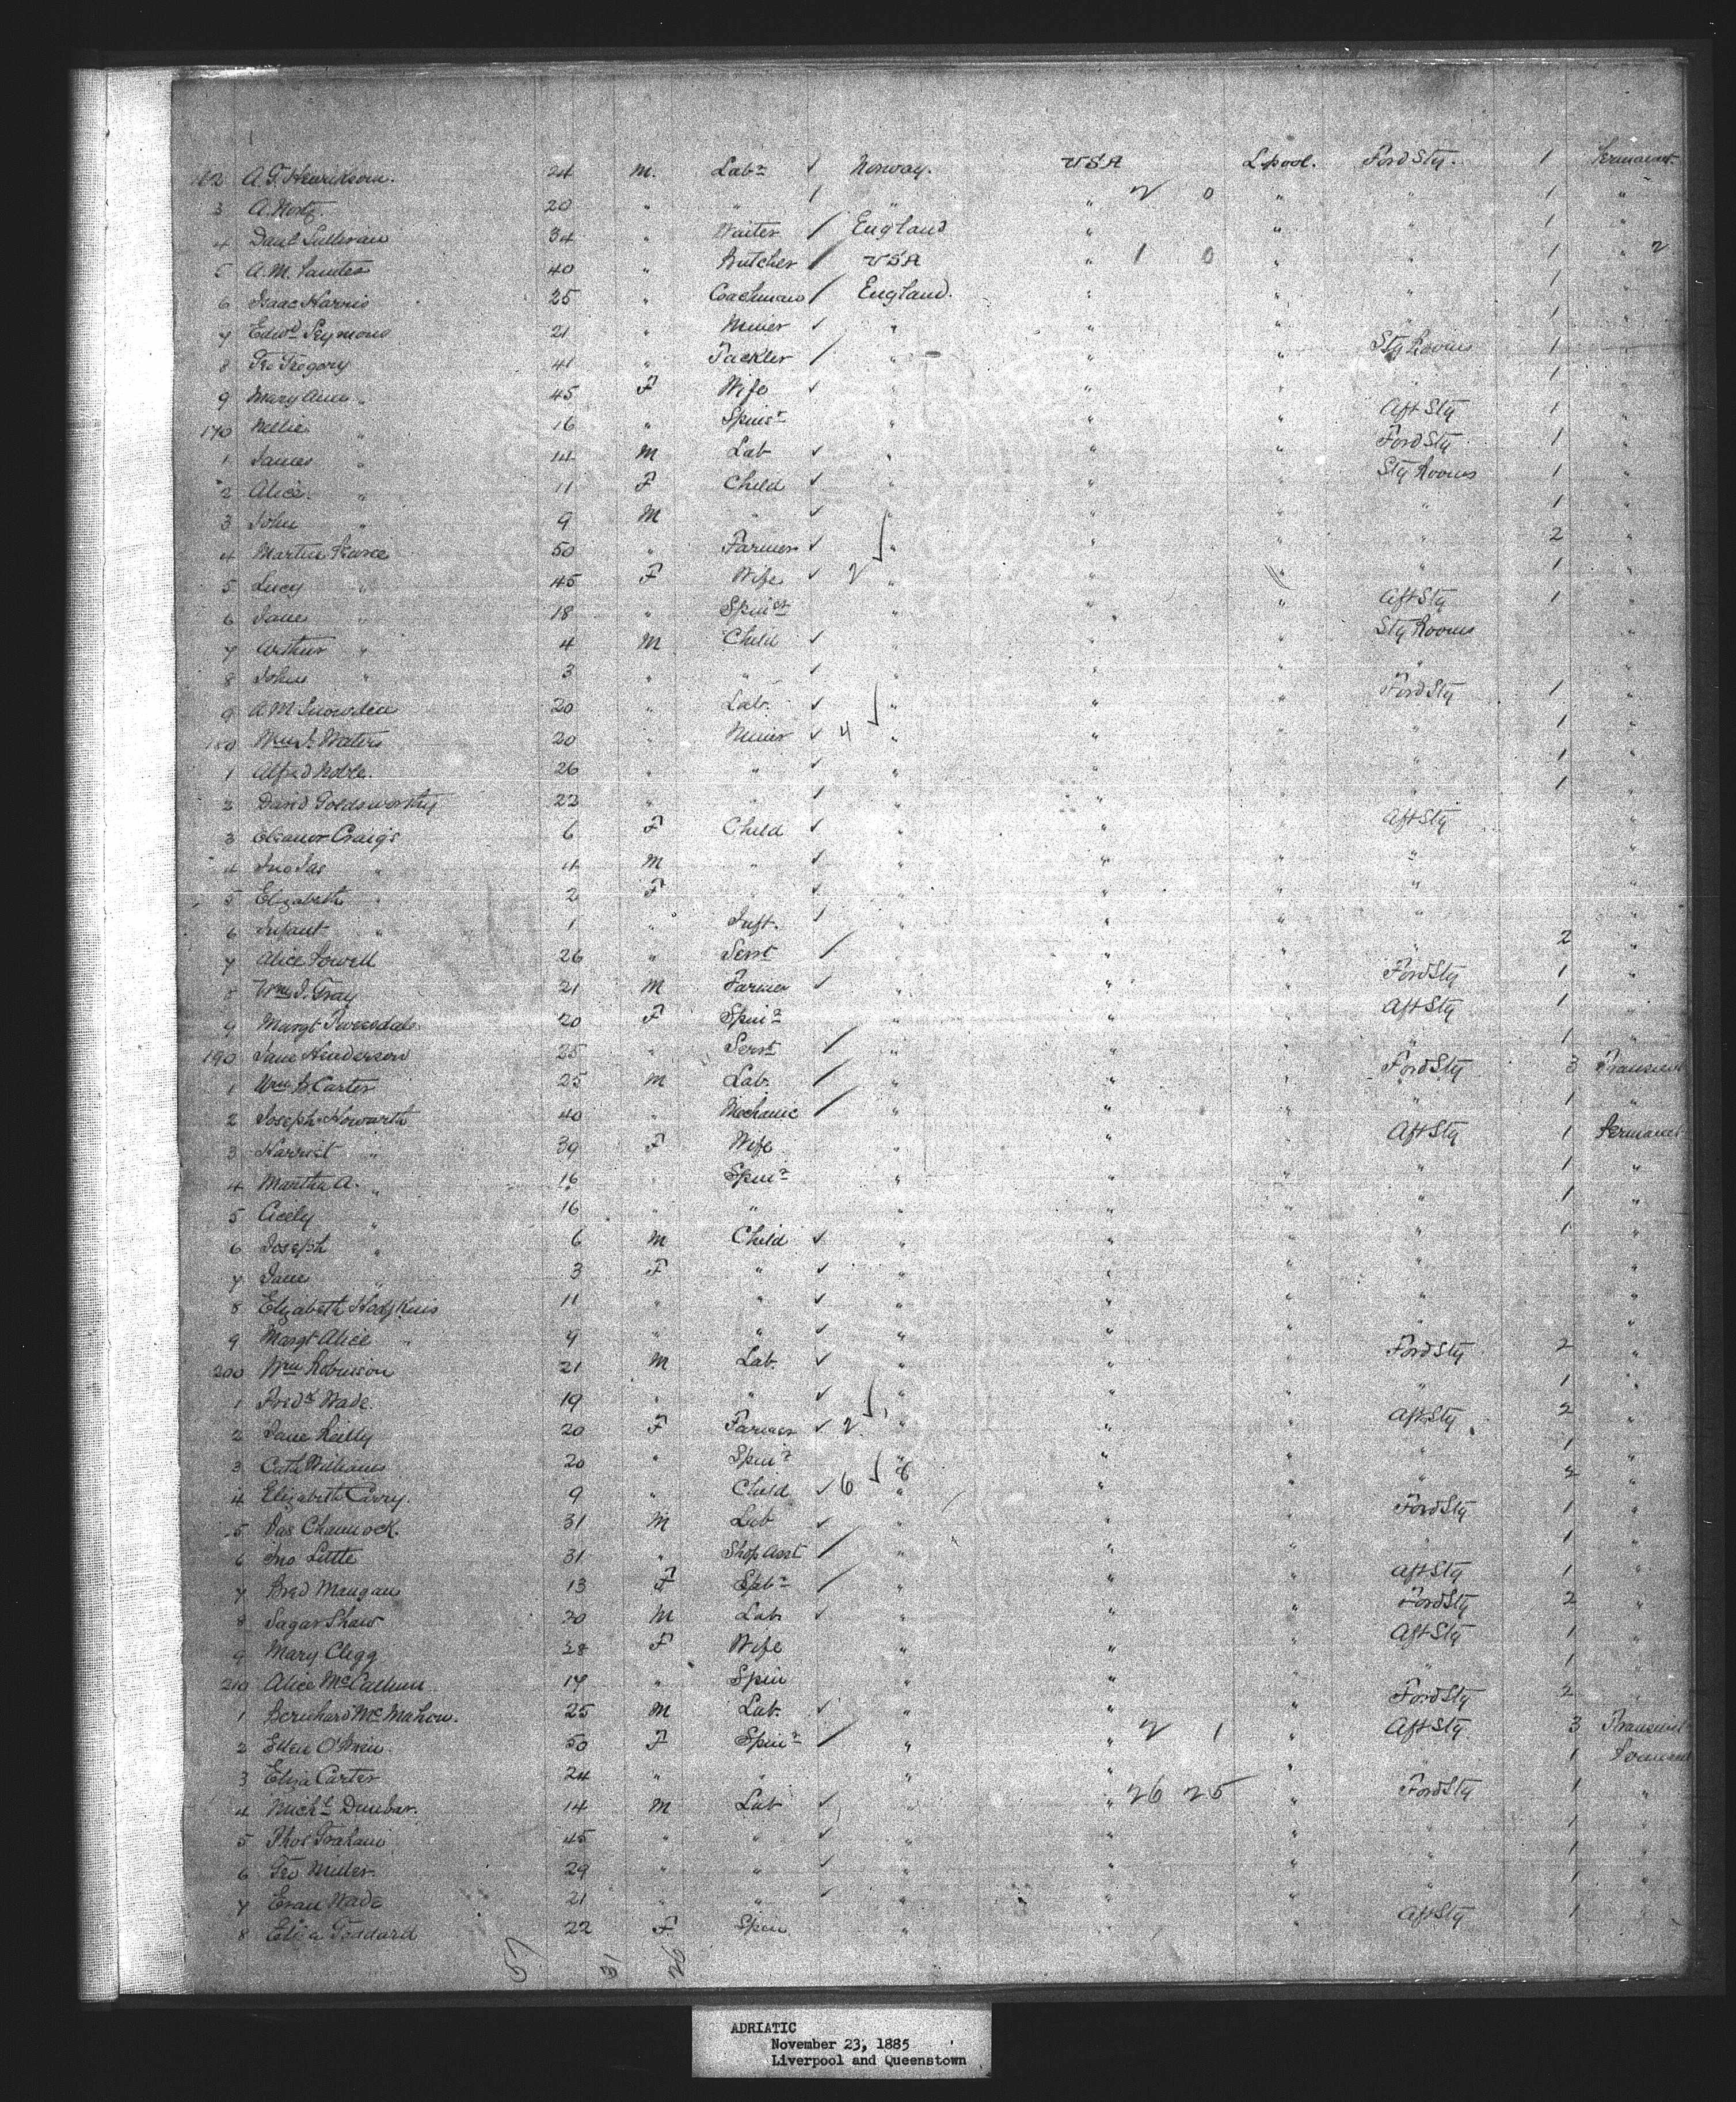 162 A.F. Henrikson. 24 M. Labr ✓ Norway. USA L.pool. Ford Stg. 1 Permanent
3 A. Nortz. 20 " " / " " 2 0 " " 1 "
4 Danl Sullivan 34 " Waiter / England " " " 1 "
5 A.M. Santes 40 " Butcher / USA " 1 0 " " 1 " 2
6 Isaac Harris 25 " Coachman / England. " " " 1
7 Edwd Seymour 21 " Miner ✓ " " " 1 "
8 Geo Gregory 41 " Packler / " " " Stg Rooms 1 "
9 Mary Ann " 45 F Wife ✓ " " " " 1
170 Nellie " 16 " Spinsr " " " Aft Stg 1 "
1 James " 14 M Lab ✓ " " " Ford Stg 1 "
2 Alice. " 11 F Child ✓ " " " Stg Rooms 1 "
3 John " 9 M " ✓ " " " 1 "
4 Martin Pearce 50 " Farmer ✓ " " " " 2 "
5 Lucy " 45 F Wife ✓ 2 " " " " 1 "
6 Jane " 18 " Spinst " " " Aft Stg 1 "
7 Arthur " 4 M Child ✓ " " " Stg Rooms "
8 John " 3 " " ✓ " " " " "
9 A.M. Snowden 20 " Lab. ✓ " " " Ford Stg 1 "
180 Wm J. Waters 20 " Miner ✓ 4 " " " " 1 "
1 Alfred Noble. 26 " " ✓ " " " " 1 "
2 David Goldsworthy 22 " " / " " " " 1 "
3 Eleanor Craigs 6 F Child ✓ " " " Aft Stg "
4 Jno Jas " 4 M " ✓ " " " " "
5 Elizabeth " 2 F " ✓ " " " " "
6 Infant " 1 " Inft. / " " " " "
7 Alice Lowell 26 " Servt / " " " " 2 "
8 Wm J. Gray 21 M Farmer ✓ " " " Ford Stg 1 "
9 Margt Tweesdale 20 F Spinr " " " Aft Stg 1 "
190 Jane Henderson 25 " Servt / " " " " 1 "
1 Wm B. Carter 25 M Lab. / " " " Ford Stg 3 Transient
2 Joseph Howarth 40 " Mechanic / " " " " 1 "
3 Harriet " 39 F Wife " " " Aft Stg 1 Permanent
4 Martha A. " 16 " Spinr " " " " 1 "
5 Cicely " 16 " " " " " " 1 "
6 Joseph " 6 M Child ✓ " " " " 1 "
7 Jane " 3 F " ✓ " " " " "
8 Elizabeth Hodgkins 11 " " ✓ " " " " "
9 Margt Alice " 9 " " ✓ " " " "
200 Wm Robinson 21 M Lab. ✓ " " " Ford Stg 2 "
1 Fredk Wade. 19 " " ✓ " " " " 1 "
2 Jane Reilly 20 F Farmer ✓ 2 " " " Aft Stg 2 "
3 Cath Williams 20 " Spinr " 8 " " " 1 "
4 Elizabeth Carry. 9 " Child ✓ 6 " " " " 2 "
5 Jas Charnock. 31 M Lab ✓ " " " Ford Stg 1 "
6 Jno Little 31 " Shop Asst / " " " " 1 "
7 Brid Mangan 13 F Spbr / " " " Aft Stg 1 "
8 Sagar Shaw 20 M Lab ✓ " " " Ford Stg 2 "
9 Mary Clegg 28 F Wife " " " Aft Stg 1 "
210 Alice McCallum 19 " Spin " " " " 1 "
1 Bernhard McMahon. 25 M Lab. ✓ " " " Ford Stg 2 "
2 Ellen O'Brien 50 F Spinr / " 2 1 " Aft Stg. 3 Transient
3 Eliza Carter 24 " " " " " " 1 Permanent
4 Michl Dunbar. 14 M Lab ✓ " " 26 25 " Ford Stg 1 "
5 Thos Graham 45 " " ✓ " " " " 1 "
6 Geo Miller. 29 " " ✓ " " " " 1 "
7 Evan Wade 21 " " ✓ " " " " 1 "
8 Eliza Goddard 22 F Spin " " " Aft Stg 1 "
57 31 26
ADRIATIC
November 23, 1885
Liverpool and Queenstown